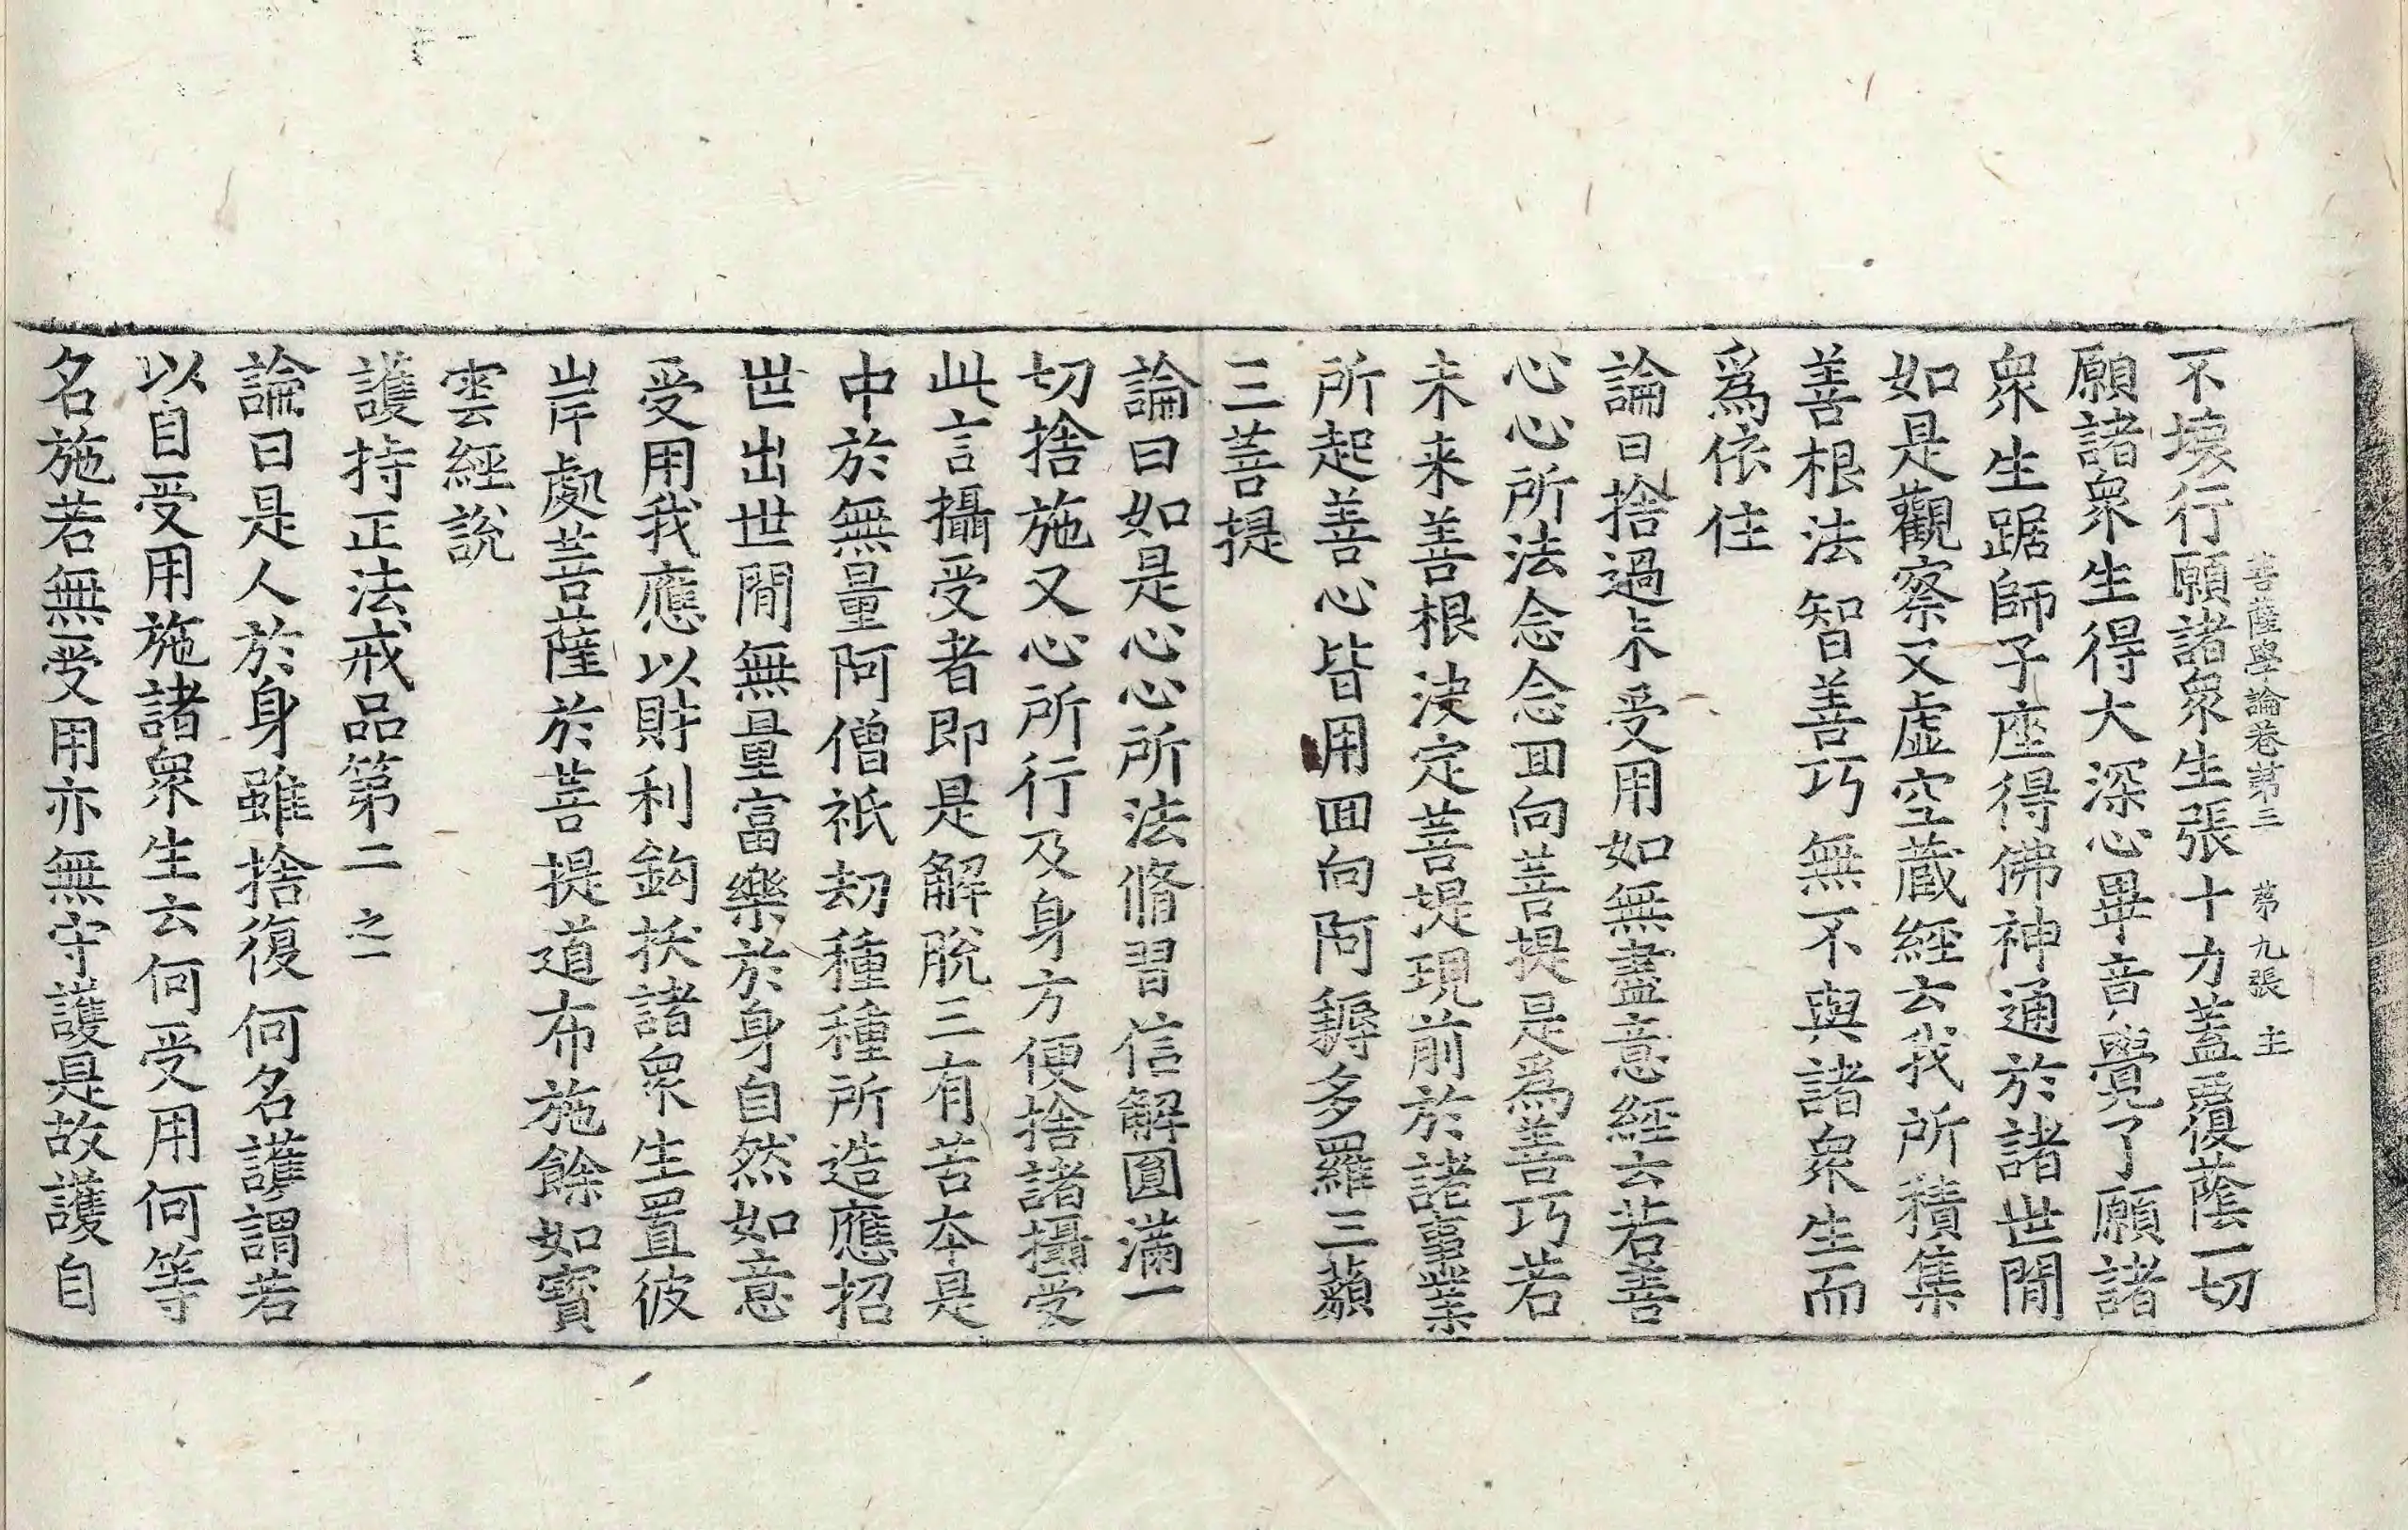 菩薩學論卷第二 第九張 主
不壞行願諸衆生張十力蓋覆蔭一切
願諸衆生得大深心畢音覺了願諸
衆生踞師子座得佛神通於諸世間
如是觀察又虛空蔵經云我所積集
善根法智善巧無不與諸衆生而
爲依住
論曰捨過未受用如無盡意經云若善
心心所法念念囬向菩提是爲善巧若
未来善根决定菩提現前於諸事業
所起善心皆用囬向阿耨多羅三藐
三菩提
論曰如是心心所法脩習信解圓滿一
切捨施又心所行及身方便捨諸攝受
此言攝受者即是解脫三有苦本是
中於無量阿僧祇刧種種所造應招
世出世間無量富樂於身自然如意
受用我應以財利鈎挍諸衆生置彼
岸處菩薩於菩提道布施餘如寳
雲經說
護持正法戒品第二 之一
論曰是人於身雖捨復何名護謂若
以自受用施諸衆生云何受用何等
名施若無受用亦無守護是故護自